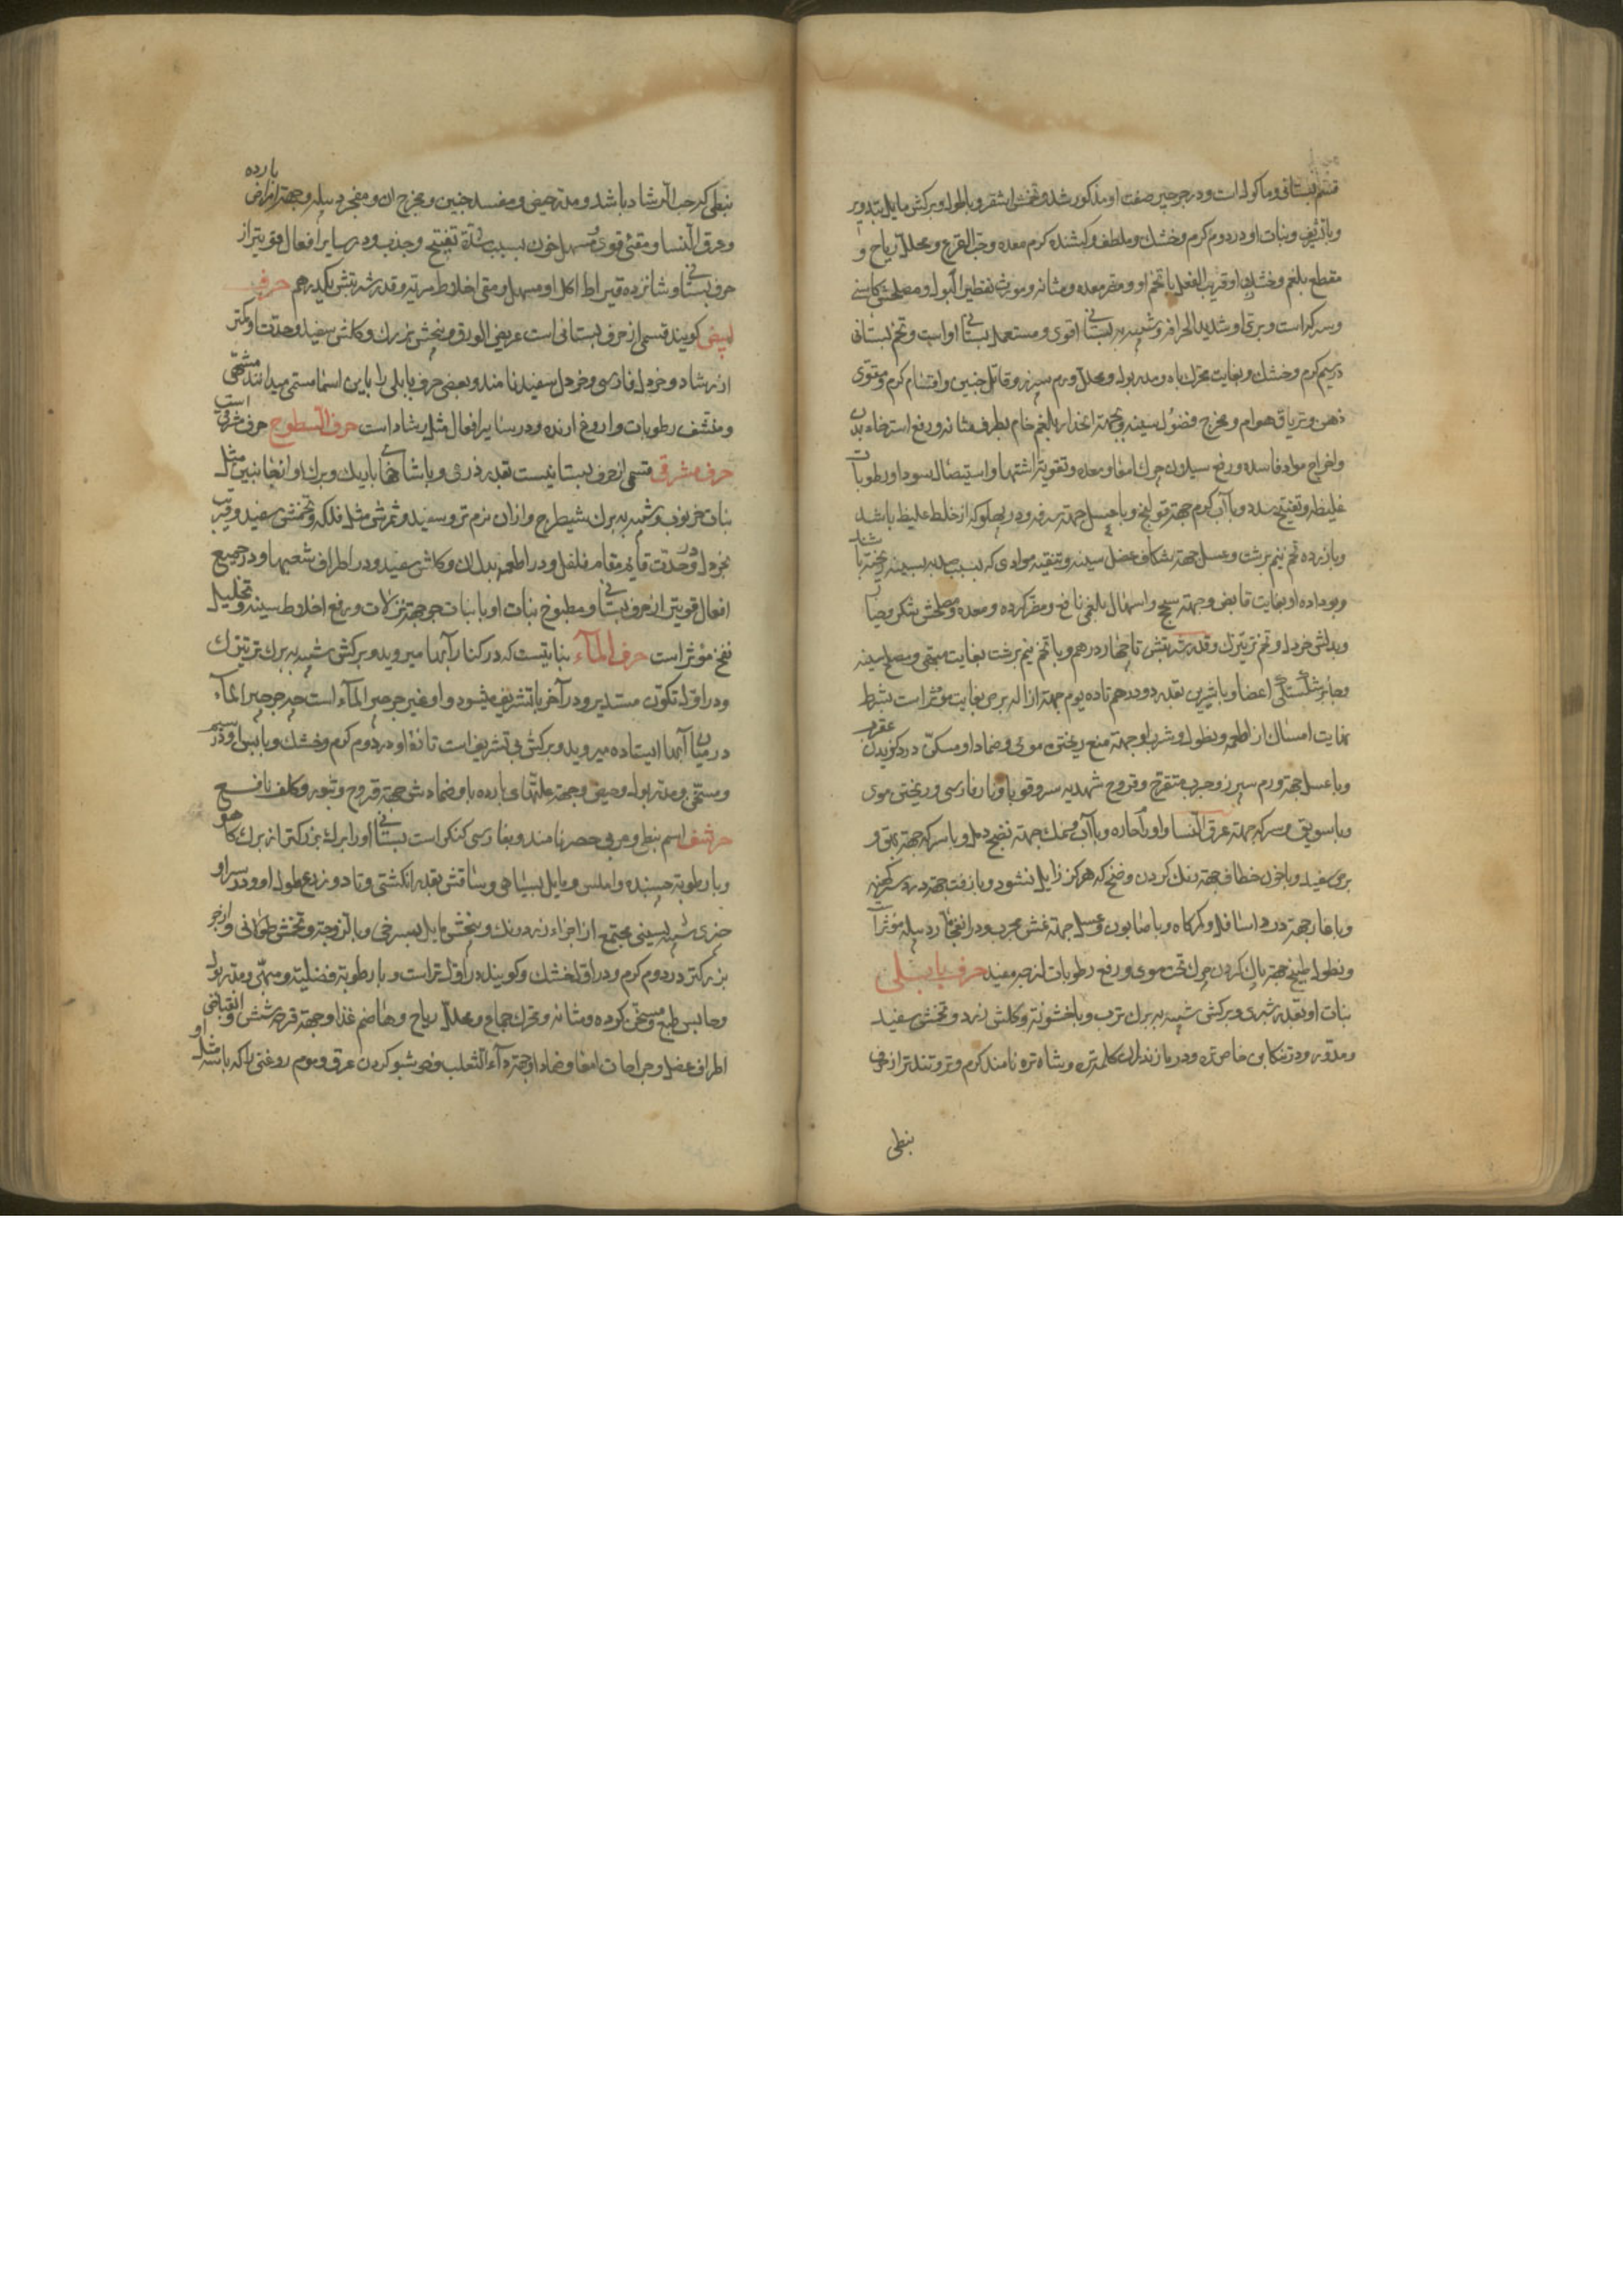 قسم بستانی و ماکولست و در جرجیر صفت او مذکور شد و تخمش اشقر و با طول و برکش مایل بتدویر
و با تشریف و نبات او در دوم کرم و خشک و ملطف و کشنده کرم معده و حب القرع و محلل ریاح و
مقطع بلغم و خشک او قریب الفعل با تخم او و مضر معده و مثانه و مورث تقطیر البول و مصلحش کاسنی
و سرکه است و بری او شدید الحرافة و شبیه به بستانی و اقوی و مستعمل بستانی او است و تخم بستانی
در سیم کرم و خشک و بغایت محرک باه و مدر بول و محلل ورم سپرز و قاتل جنین و اقسام کرم و مقوی
ذهن و تریاق هوام و مخرج فضول سینه و بجهة انحدار بلغم خام بطرف مثانه و رفع استرخاء بدن
و اخراج مواد فاسده و رفع سیلان چرک امعا و معده و تقویة اشتها و استیصال سودا و رطوبات
غلیظه و تفتیح سدد و با آب کرم جهة قولنج و با عسل جهة سرفه و درد پهلو که از خلط غلیظ باشد
و با زرده تخم نیم برشت و عسل جهة شکاف عضل سینه و تنقیه موادی که بسبب صدمه بسینه ریخته باشد
و بو داده او بغایت قابض و جهة سحج و اسهال بلغمی نافع و مضر کرده و معده و مصلحش شکر و خیار
و بدلش خردل و تخم ترتیزک و قدر شربتش تا چهار درهم و با تخم نیم برشت بغایت مبهی و مصلح سینه
و جابر شکستگی اعضا و با شیرین بقدر دو درهم تا ده یوم جهة ازاله برص بغایت مؤثر است بشرط
نهایت امساک از اطعمه و نطول و شرب او جهة منع ریختن موی و ضماد او مسکن درد کزیدن عقرب
و با عسل جهة ورم سپرز و جرب متقرح و قروح شهدیه سر و قوبا و نار فارسی و ریختن موی
و با سویق و سرکه جهة عرق النسا و اورام حاره و با آب و نمک جهة نضج دمل و با سرکه جهة بهق و
برص سفید و با خون خطاف جهة رنک کردن وضح که هرکز زایل نشود و با زفت جهة درد سر کهنه
و با قار جهة درد اسافل و کمرکاه و با صابون و عسل جهة غش مجرب و در انفجار دبیله مؤثر است
و نطول طبیخ جهة پاک کردن چرک تحت موی و رفع رطوبات لزجه مفید حرف بابلی
نبات او بقدر شبری و برکش شبیه ببرک ترب و با خشونة و کلش زرد و تخمش سفید
و مدور و در تنکابن خاص تره و در مازندران کلمتره و شاه تره نامند کرم و تر و تندتر از حرف
نبطی
نبطی که حب الرشاد باشد و مدر حیض و مفسد جنین و مخرج ان و مفجر دبیله و جهة امراض بارده
و عرق النسا و مقئ قوی و مسهل خون بسبب شدة تفتیح و جذب و در سایر افعال قویتر از
حرف بستانی و شانزده قیراط اکل او مسهل و مقی اخلاط مریه و قدر شربتش یکدرهم حرف
ابیض کویند قسمی از حرف بستانی است عریض الورق و بیخش بزرک و کلش سفید و حدتش کمتر
از رشاد و خردل فارسی و خردل سفید نامند و بعضی حرف بابلی را باین اسم مسمی میدانند مشهی
و منشف رطوبات و اروغ ارنده و در سایر افعال مثل رشاد است حرف السطوح حرف شرقی است
حرف مشرقی قسمی از حرف بستانیست بقدر ذرعی و با شاخهای باریک و برک او از جانبین مثل
نبات خرنوب و شبیه به برک شیطرج و ازان نرم تر و سفید و ثمرش مثل فلکه و تخمش سفید و قریب
بخردل و در حدت قایم مقام فلفل و در اطعمه بدل ان و کلش سفید و در اطراف شعبها و در جمیع
افعال قویتر از حرف بستانی و مطبوخ نبات او با نبات جو جهة نزلات و رفع اخلاط سینه و تحلیل
نفخ مؤثر است حرف المآء نباتیست که در کنار آبها میروید و برکش شبیه به برک ترتیزک
و در اول تکون مستدیر و در آخر با تشریف میشود و او غیر جرجیر المآء است چه جرجیر المآء
در میان آبها ایستاده میروید و برکش بی تشریف است تازهٔ او در دوم کرم و خشک و با یبس او در سیم
و مسخن و مدر بول و حیض و جهة علتهای بارده با و ضمادش جهة قروح و بثور و کلف نافع
حرشف اسم نبطی و عربی حصر نامند و بفارسی کنکر است بستانی او را برک بزرکتر از برک کاهو
و با رطوبة چسبنده و املس و مایل بسیاهی و ساقش بقدر انکشتی و تا دو ذرع طول او و در سر او
چیزی شبیه بسینی مجتمع از اجزاء زرد رنک و بیخش مایل بسرخی و با لزوجة و تخمش طولانی و از جو
بزرکتر در دوم کرم و در اول خشک و کویند در اول تر است و با رطوبة فضلیه و مبهی و مدر بول
و حابس طبع و مسخن کرده و مثانه و محرک جماع و محلل ریاح و هاضم غذا و جهة قرحه شش و انقباض
اطراف عضل و جراحات امعا و ضماد او جهة دآء الثعلب و خوشبو کردن عرق و موم روغنی را که با مثل او